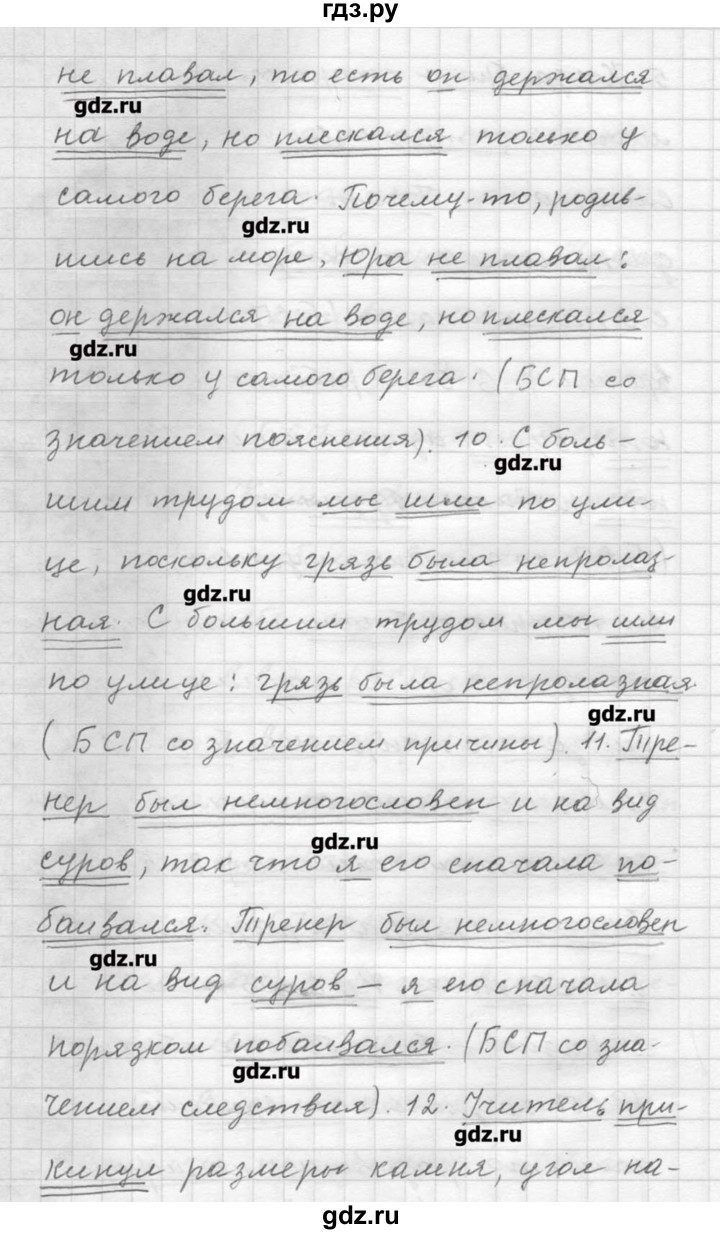 гдз.ру
не плавал, то есть он держался
gdz.ru
на воде, но плескался только у
самого берега. Почему-то, родив-
gdz.ru
шись на море, Юра не плавал:
он держался на воде, но плескался
gdz.ru
только у самого берега. (БСП со
значением пояснения). 10. С боль-
gdz.ru
шим трудом мы шли по ули-
це, поскольку грязь была непролаз-
gdz.ru
ная. С большим трудом мы шли
по улице: грязь была непролазная.
gdz.ru
(БСП со значением причины). 11. Тре-
нер был немногословен и на вид
gdz.ru
суров, так что я его сначала по-
баивался. Тренер был немногословен
gdz.ru
и на вид суров – я его сначала
порядком побаивался. (БСП со зна-
gdz.ru
чением следствия). 12. Учитель при-
gdz.ru
кинул размеры камня, угол на-
gdz.ru